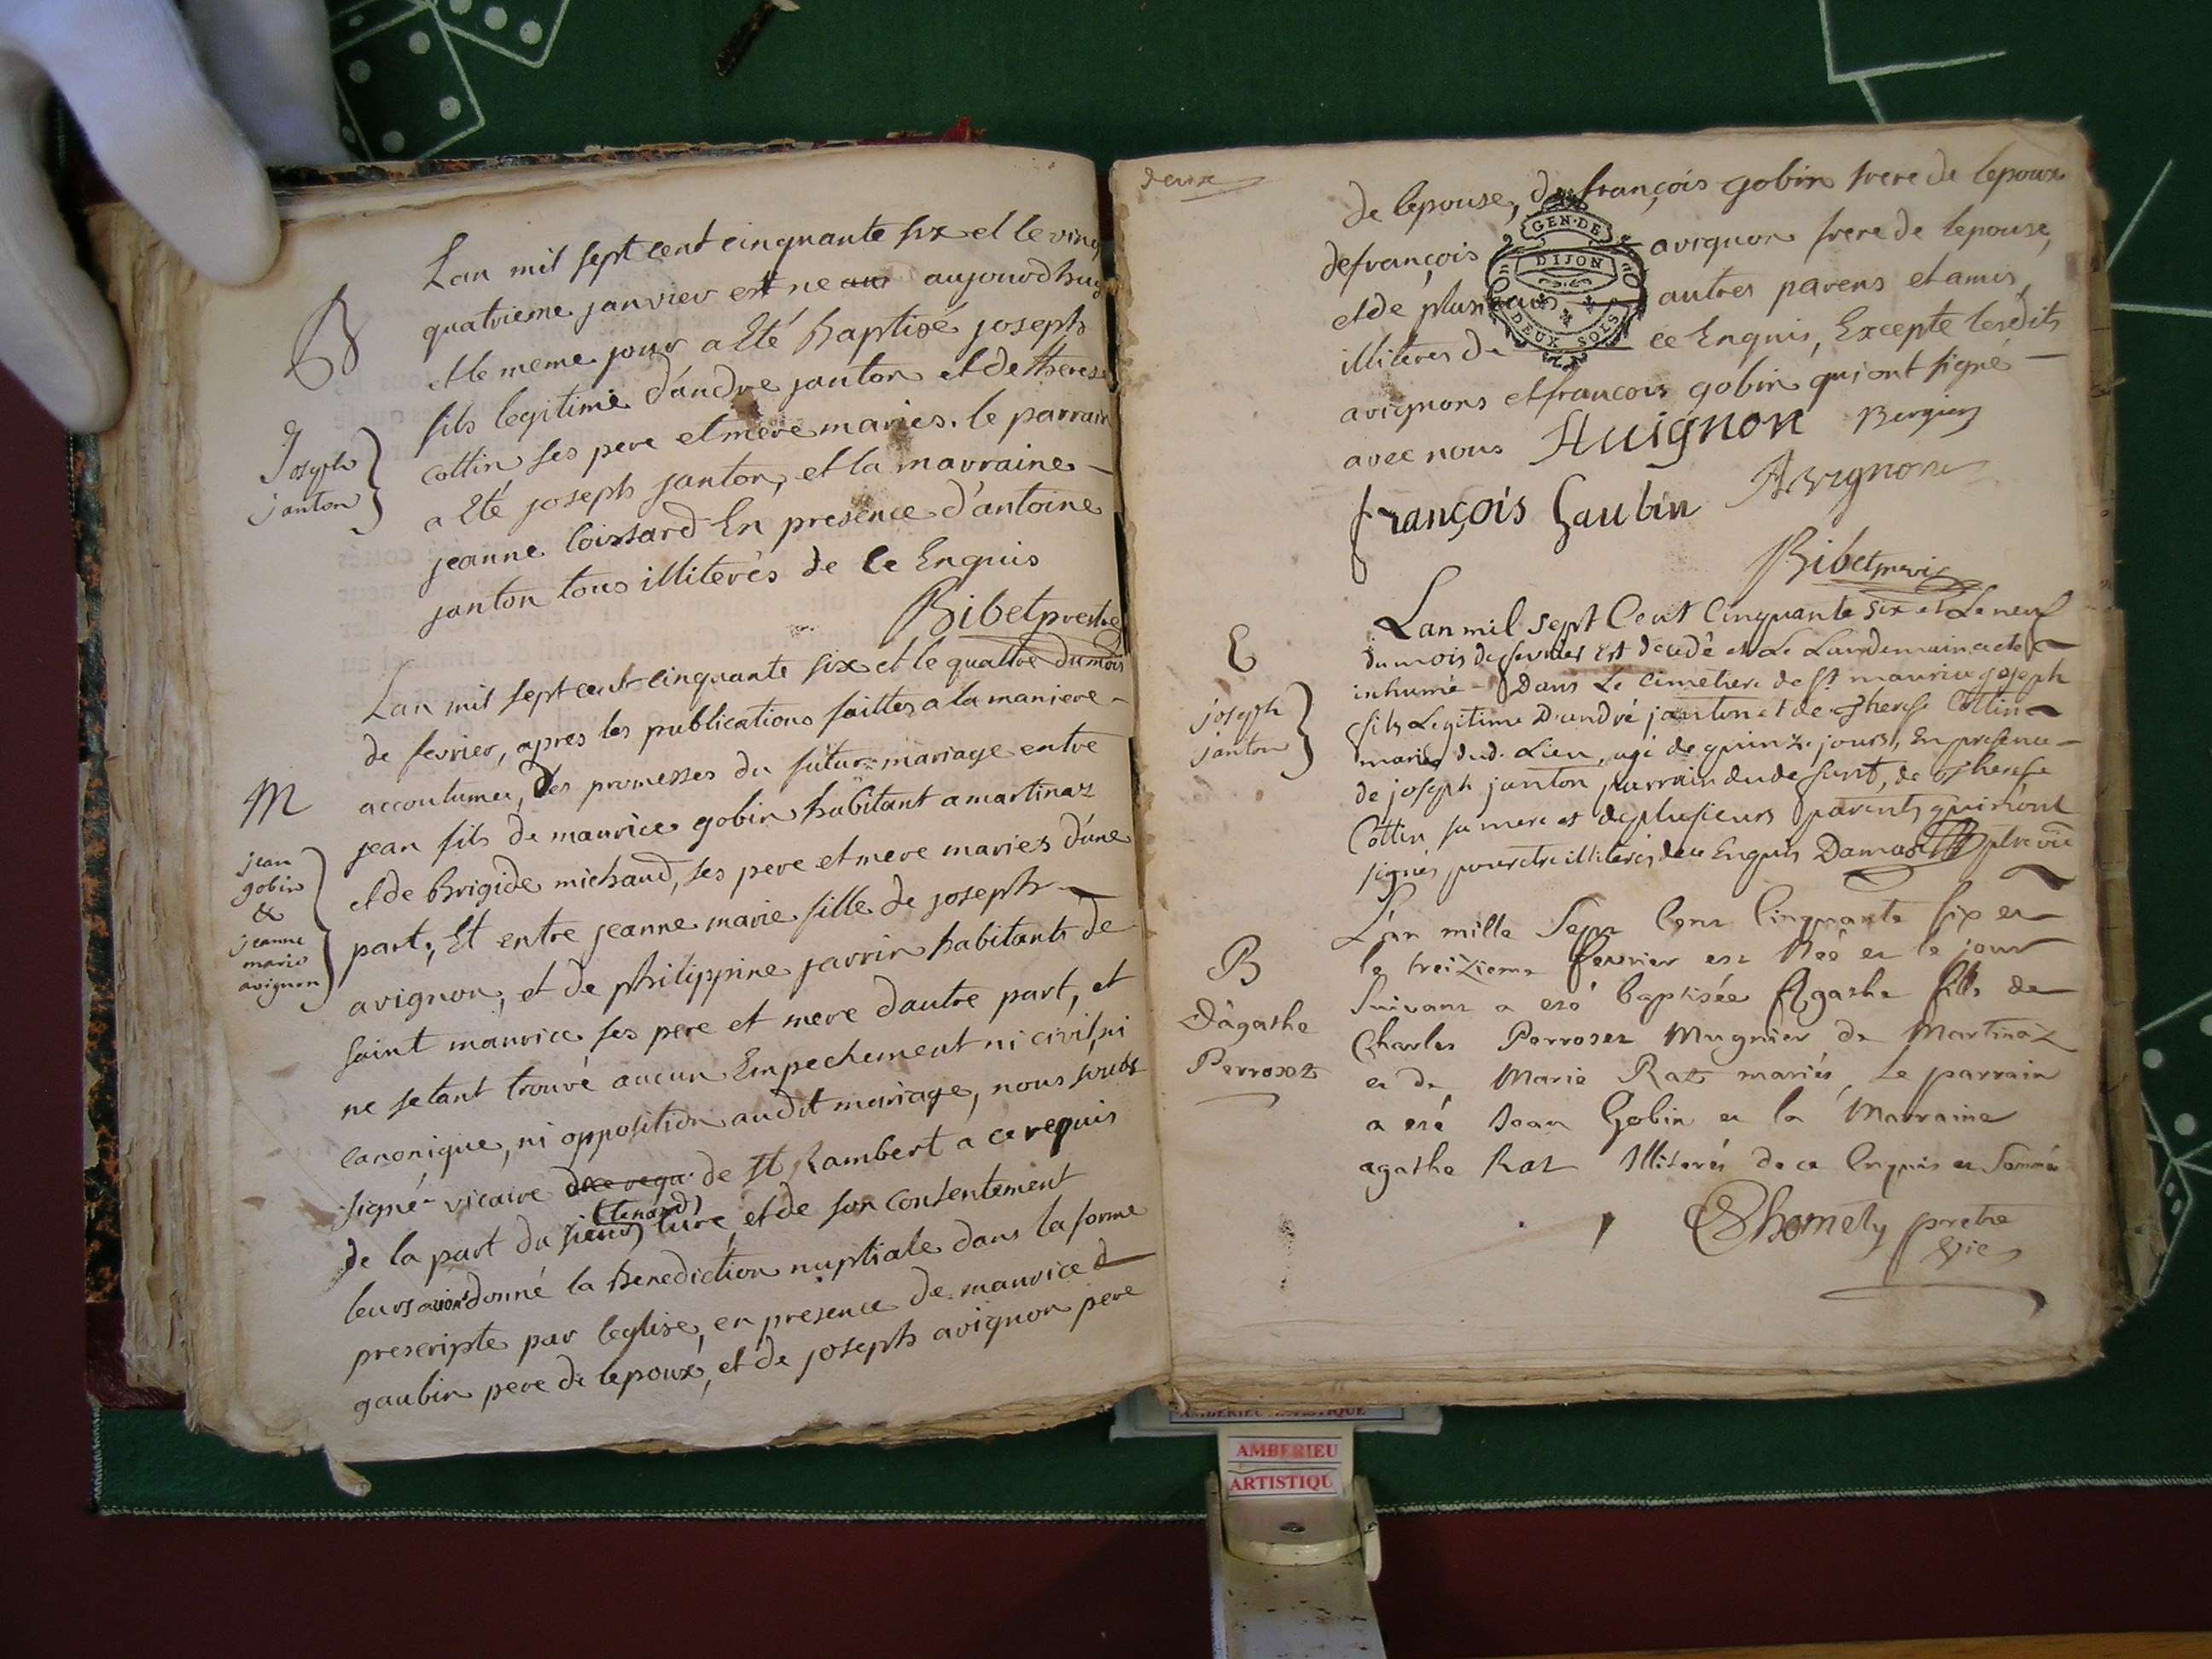 Lan mil sept cent cinquante six et le vingt
quatrieme janvier est ne aujourdhuy
et le meme jour a Eté Baptisé joseph
fils legitime d'andre janton et de therese
cottin ses pere et mere maries. le parrain
a Eté joseph janton, et la marraine
jeanne Coissard En presence d'antoine
janton tous illiterés de ce Enquis
Bibet prestre
B
Joseph
janton
Lan mil sept cent cinquante six et le quattre du mois
de fevrier, apres les publications faittes a la maniere
accoutumée, des promesses du futur mariage entre
jean fils de maurice gobin habitant a martinaz
et de Brigide michaud, ses pere et mere maries d'une
part; Et entre jeanne marie fille de joseph
avignon, et de philippine javrin habitants de
saint maurice ses pere et mere dautre part, et
ne setant trouvé aucun Empechement ni civil, ni
canonique, ni opposition audit mariage, nous soubs
signé vicaire de St Rambert a ce requis
de la part du sieur (tenand) curé, et de son consentement
leurs avons donné la Benediction nuptiale dans la forme
prescripte par leglise, en presence de maurice
gaubin pere de lepoux, et de joseph avignon pere
M
jean
gobin
&
jeanne
marie
avignon
deux
de lepouse, de françois gobin frere de lepoux
de françois avignon frere de lepouse,
et de plusieurs autres parens et amis,
illiteres de ce Enquis, Excepte lesdits
avignons et francois gobin qui ont signé
avec nous Auignon Bergier
françois Gaubin Avignon
Bibet
GEN. DE
DIJON
DEUX SOLS
Lan mil sept Cent Cinquante six et Le neuf
du mois de fevrier est decedé et Le Landemain a eté
inhumé Dans Le cimetiere de St maurice joseph
fils Legitime D'andré janton et de Therese Cottin
mariés dud. Lieu, agé de quinze jours, En presence
de joseph janton parrain du defunt, de Therese
Cottin sa mere et de plusieurs parents qui n'ont
signés pour etre illiterés de ce Enquis Damas ptre vic
E
joseph
janton
L'an mille Sept Cent Cinquante six et
le treizieme fevrier est Néé et le jour
Suivant a eté baptisée Agathe fille de
Charles Perroset Mugnier de Martinaz
et de Marie Rat mariés, Le parrain
a eté Jean Gobin et la Marraine
agathe Rat Illiterés de ce Enquis et Sommés
Chomety pretre
vic
B
D'agathe
Perroset
AMBERIEU ARTISTIQUE
AMBERIEU
ARTISTIQU